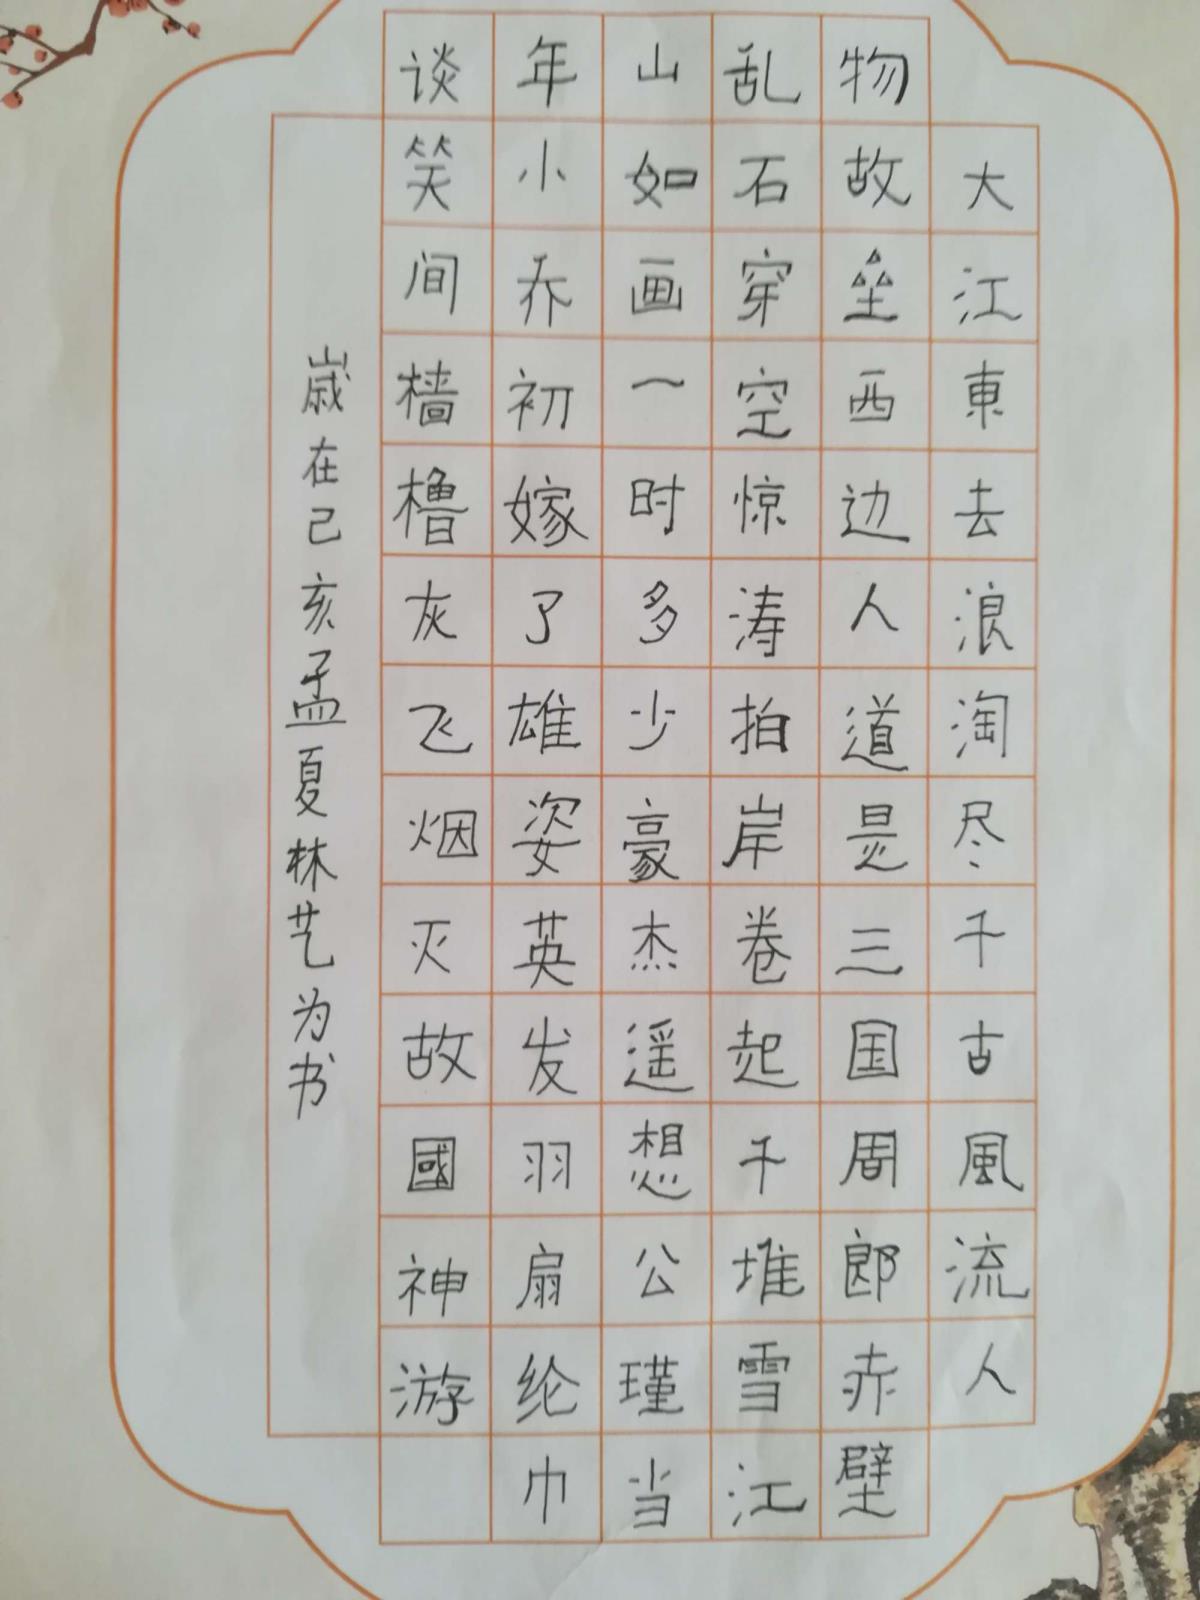 大江東去浪淘尽千古風流人
物故垒西边人道是三国周郎赤壁
乱石穿空惊涛拍岸卷起千堆雪江
山如画一时多少豪杰遥想公瑾当
年小乔初嫁了雄姿英发羽扇纶巾
谈笑间樯橹灰飞烟灭故國神游
嵗在己亥孟夏林艺为书